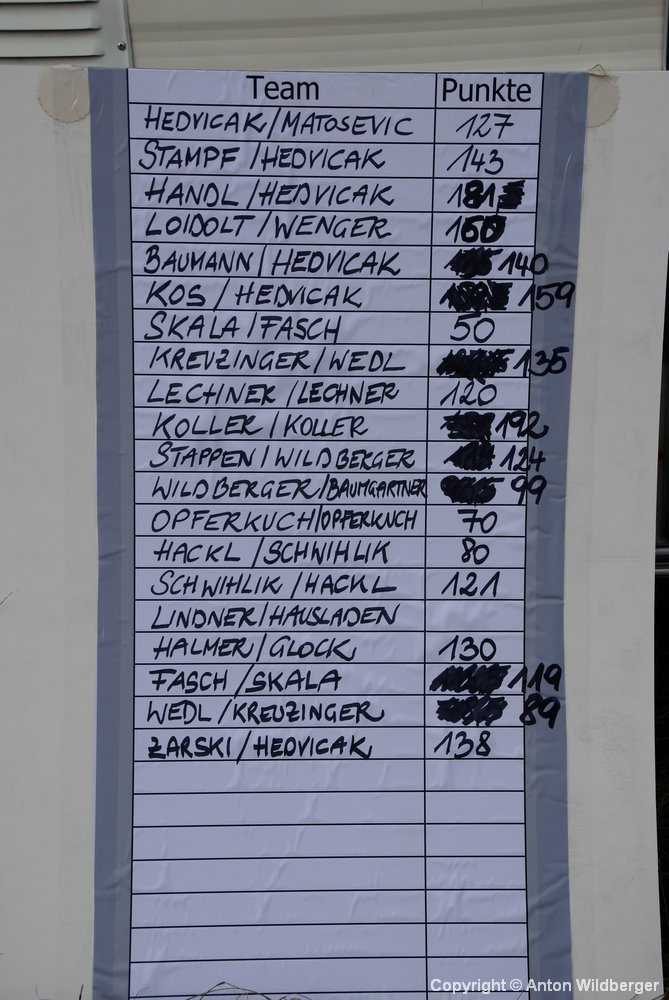 Team Punkte
HEDVICAK/MATOSEVIC 127
STAMPF/HEDVICAK 143
HANDL/HEDVICAK 181
LOIDOLT/WENGER 150
BAUMANN/HEDVICAK 140
KOS/HEDVICAK 159
SKALA/FASCH 50
KREUZINGER/WEDL 135
LECHNER/LECHNER 120
KOLLER/KOLLER 192
STAPPEN/WILDBERGER 124
WILDBERGER/BAUMGARTNER 99
OPFERKUCH/OPFERKUCH 70
HACKL/SCHWIHLIK 80
SCHWIHLIK/HACKL 121
LINDNER/HAUSLADEN
HALMER/GLOCK 130
FASCH/SKALA 119
WEDL/KREUZINGER 89
ZARSKI/HEDVICAK 138
Copyright © Anton Wildberger